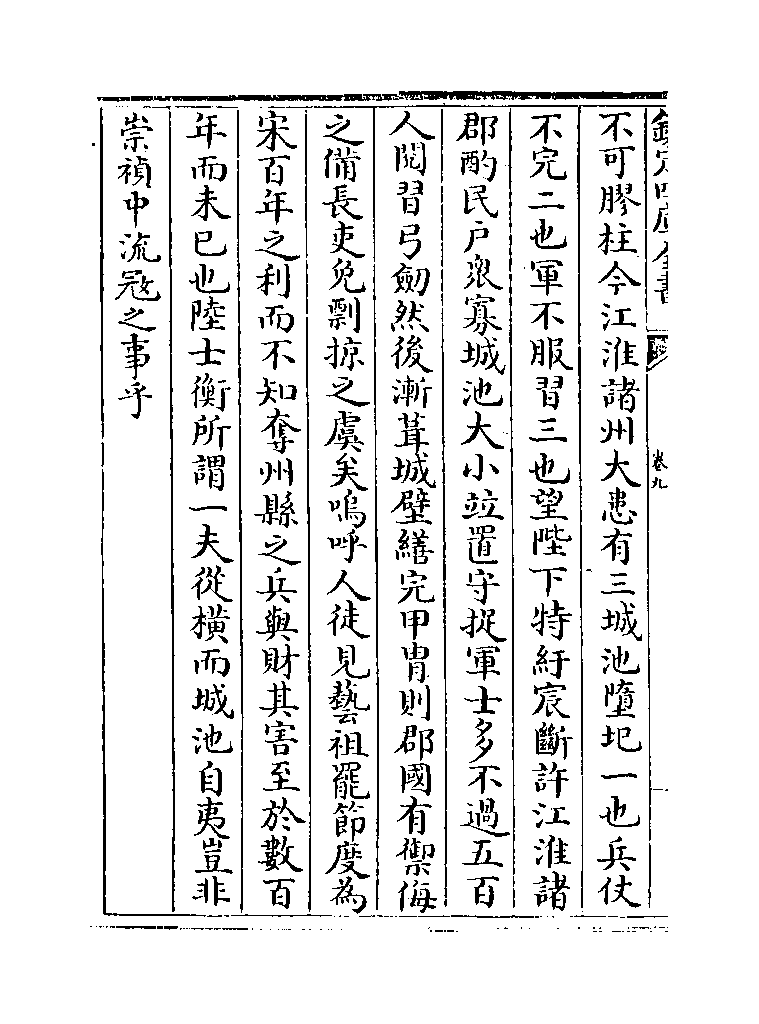 欽定四庫全書
卷九
不可膠柱今江淮諸州大患有三城池墮圯一也兵仗
不完二也軍不服習三也望陛下特紆宸斷許江淮諸
郡酌民戶衆寡城池大小竝置守捉軍士多不過五百
人閱習弓劒然後漸葺城壁繕完甲胄則郡國有禦侮
之備長吏免剽掠之虞矣嗚呼人徒見藝祖罷節度為
宋百年之利而不知奪州縣之兵與財其害至於數百
年而未已也陸士衡所謂一夫從横而城池自夷豈非
崇禎中流冦之事乎